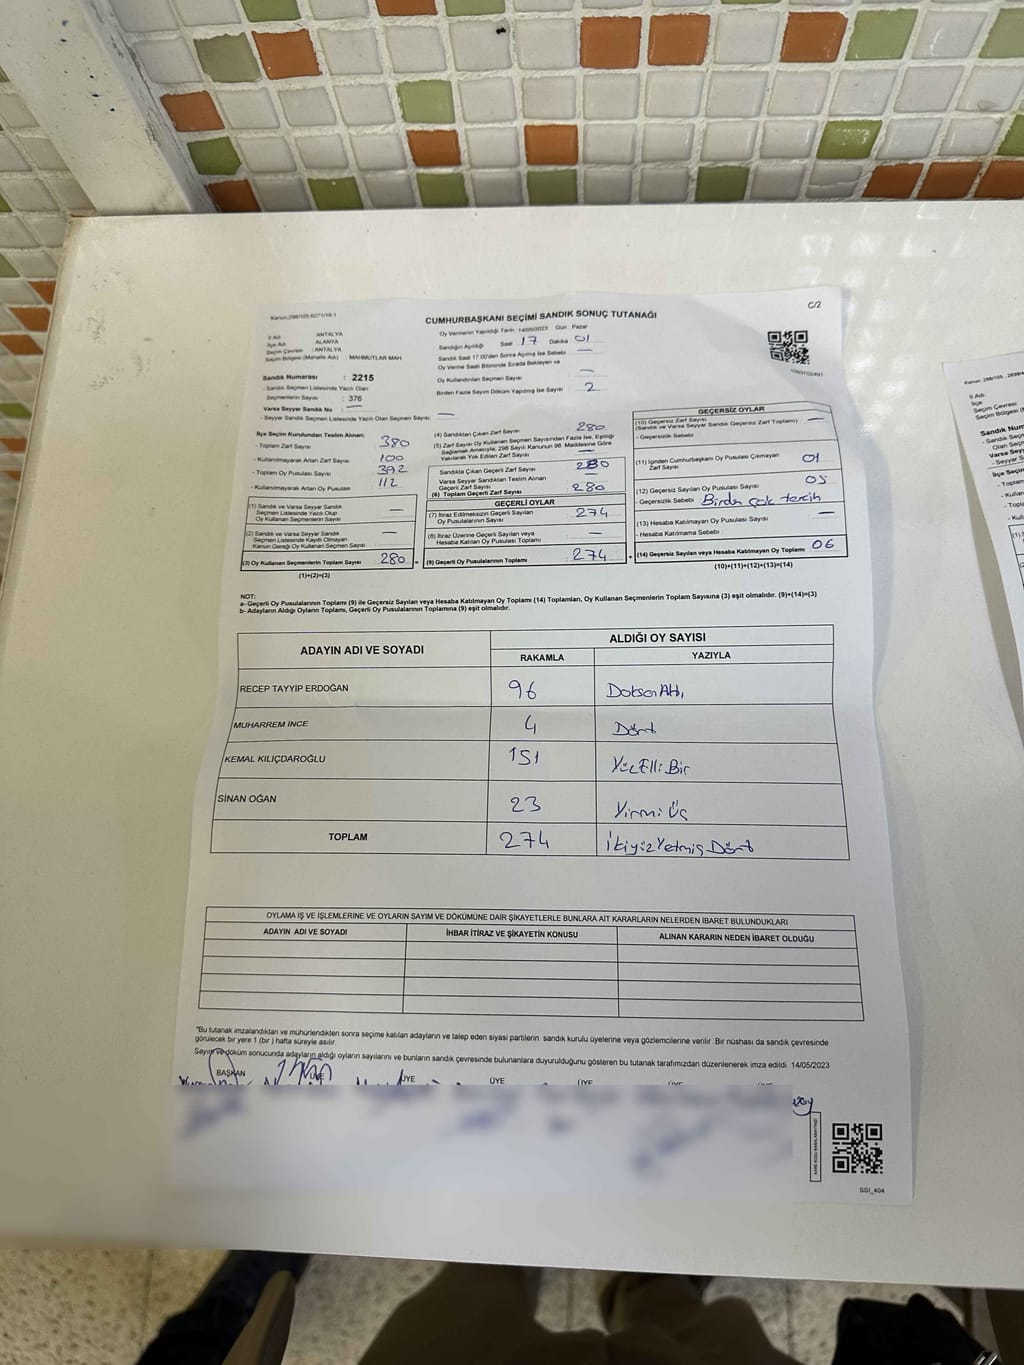 Kanun:298/105,6271/18-1
C/2
CUMHURBAŞKANI SEÇİMİ SANDIK SONUÇ TUTANAĞI
İl Adı : ANTALYA
İlçe Adı : ALANYA
Seçim Çevresi : ANTALYA
Seçim Bölgesi (Mahalle Adı) : MAHMUTLAR MAH.
Sandık Numarası : 2215
- Sandık Seçmen Listesinde Yazılı Olan
Seçmenlerin Sayısı : 376
Varsa Seyyar Sandık No : —
- Seyyar Sandık Seçmen Listesinde Yazılı Olan Seçmen Sayısı : —
Oy Vermenin Yapıldığı Tarih : 14/05/2023 Gün : Pazar
Sandığın Açıldığı Saat 17 Dakika 01
Sandık Saat 17:00'den Sonra Açılmış İse Sebebi —
Oy Verme Saati Bitiminde Sırada Bekleyen ve
Oy Kullandırılan Seçmen Sayısı —
Birden Fazla Sayım Döküm Yapılmış İse Sayısı 2
İlçe Seçim Kurulundan Teslim Alınan;
- Toplam Zarf Sayısı 380
- Kullanılmayarak Artan Zarf Sayısı 100
- Toplam Oy Pusulası Sayısı 392
- Kullanılmayarak Artan Oy Pusulası 112
(1) Sandık ve Varsa Seyyar Sandık
Seçmen Listesinde Yazılı Olup
Oy Kullanan Seçmenlerin Sayısı —
(2) Sandık ve Varsa Seyyar Sandık
Seçmen Listesinde Kayıtlı Olmayan
Kanun Gereği Oy Kullanan Seçmen Sayısı —
(3) Oy Kullanan Seçmenlerin Toplam Sayısı 280 =
(1)+(2)=(3)
(4) Sandıktan Çıkan Zarf Sayısı 280
(5) Zarf Sayısı Oy Kullanan Seçmen Sayısından Fazla İse, Eşitliği
Sağlamak Amacıyla, 298 Sayılı Kanunun 98. Maddesine Göre
Yakılarak Yok Edilen Zarf Sayısı —
Sandıkta Çıkan Geçerli Zarf Sayısı 280
Varsa Seyyar Sandıktan Teslim Alınan
Geçerli Zarf Sayısı —
(6) Toplam Geçerli Zarf Sayısı 280
GEÇERLİ OYLAR
(7) İtiraz Edilmeksizin Geçerli Sayılan
Oy Pusulalarının Sayısı 274
(8) İtiraz Üzerine Geçerli Sayılan veya
Hesaba Katılan Oy Pusulası Toplamı —
(9) Geçerli Oy Pusulalarının Toplamı 274 +
GEÇERSİZ OYLAR
(10) Geçersiz Zarf Sayısı
(Sandık ve Varsa Seyyar Sandık Geçersiz Zarf Toplamı) —
- Geçersizlik Sebebi
(11) İçinden Cumhurbaşkanı Oy Pusulası Çıkmayan
Zarf Sayısı 01
(12) Geçersiz Sayılan Oy Pusulası Sayısı 05
- Geçersizlik Sebebi Birden çok tercih
(13) Hesaba Katılmayan Oy Pusulası Sayısı —
- Hesaba Katılmama Sebebi
(14) Geçersiz Sayılan veya Hesaba Katılmayan Oy Toplamı 06
(10)+(11)+(12)+(13)=(14)
NOT:
a- Geçerli Oy Pusulalarının Toplamı (9) ile Geçersiz Sayılan veya Hesaba Katılmayan Oy Toplamı (14) Toplamları, Oy Kullanan Seçmenlerin Toplam Sayısına (3) eşit olmalıdır. (9)+(14)=(3)
b- Adayların Aldığı Oyların Toplamı, Geçerli Oy Pusulalarının Toplamına (9) eşit olmalıdır.
ADAYIN ADI VE SOYADI
ALDIĞI OY SAYISI
RAKAMLA YAZIYLA
RECEP TAYYİP ERDOĞAN 96 DoksanAltı
MUHARREM İNCE 4 Dört
KEMAL KILIÇDAROĞLU 151 YüzElliBir
SİNAN OĞAN 23 Yirmi Üç
TOPLAM 274 İkiyüzYetmişDört
OYLAMA İŞ VE İŞLEMLERİNE VE OYLARIN SAYIM VE DÖKÜMÜNE DAİR ŞİKAYETLERLE BUNLARA AİT KARARLARIN NELERDEN İBARET BULUNDUKLARI
ADAYIN ADI VE SOYADI İHBAR İTİRAZ VE ŞİKAYETİN KONUSU ALINAN KARARIN NEDEN İBARET OLDUĞU
"Bu tutanak imzalandıktan ve mühürlendikten sonra seçime katılan adayların ve talep eden siyasi partilerin sandık kurulu üyelerine veya gözlemcilerine verilir. Bir nüshası da sandık çevresinde
görülecek bir yere 1 (bir) hafta süreyle asılır.
Sayım ve döküm sonucunda adayların aldığı oyların sayılarını ve bunların sandık çevresinde bulunanlara duyurulduğunu gösteren bu tutanak tarafımızdan düzenlenerek imza edildi. 14/05/2023
BAŞKAN ÜYE ÜYE ÜYE ÜYE ÜYE
SSI_404
Kanun: 298/105
İl Adı
İlçe
Seçim Çevresi
Seçim Bölgesi
Sandık Num